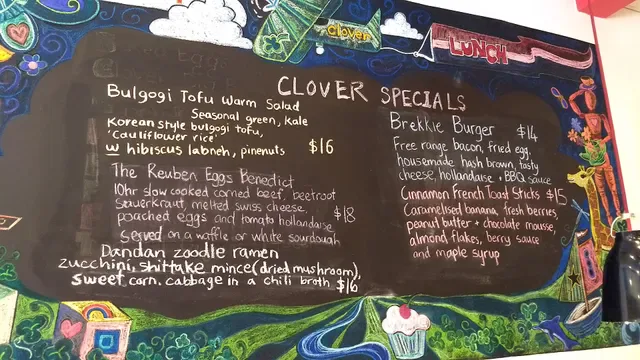 clover
LUNCH
CLOVER SPECIALS
Bulgogi Tofu Warm Salad
Seasonal green, kale
Korean style bulgogi tofu,
'Cauliflower rice'
w hibiscus labneh, pinenuts $16
The Reuben Eggs Benedict
10hr slow cooked corned beef, beetroot
Sauerkraut, melted swiss cheese,
poached eggs and tomato hollandaise $18
Served on a waffle or white sourdough
Dandan zoodle ramen
zucchini, shiitake mince (dried mushroom),
sweet corn, cabbage in a chili broth $16
Brekkie Burger $14
Free range bacon, fried egg,
housemade hash brown, tasty
cheese, hollandaise + BBQ sauce
Cinnamon French Toast Sticks $15
Caramelised banana, fresh berries,
peanut butter + chocolate mousse,
almond flakes, berry sauce
and maple syrup